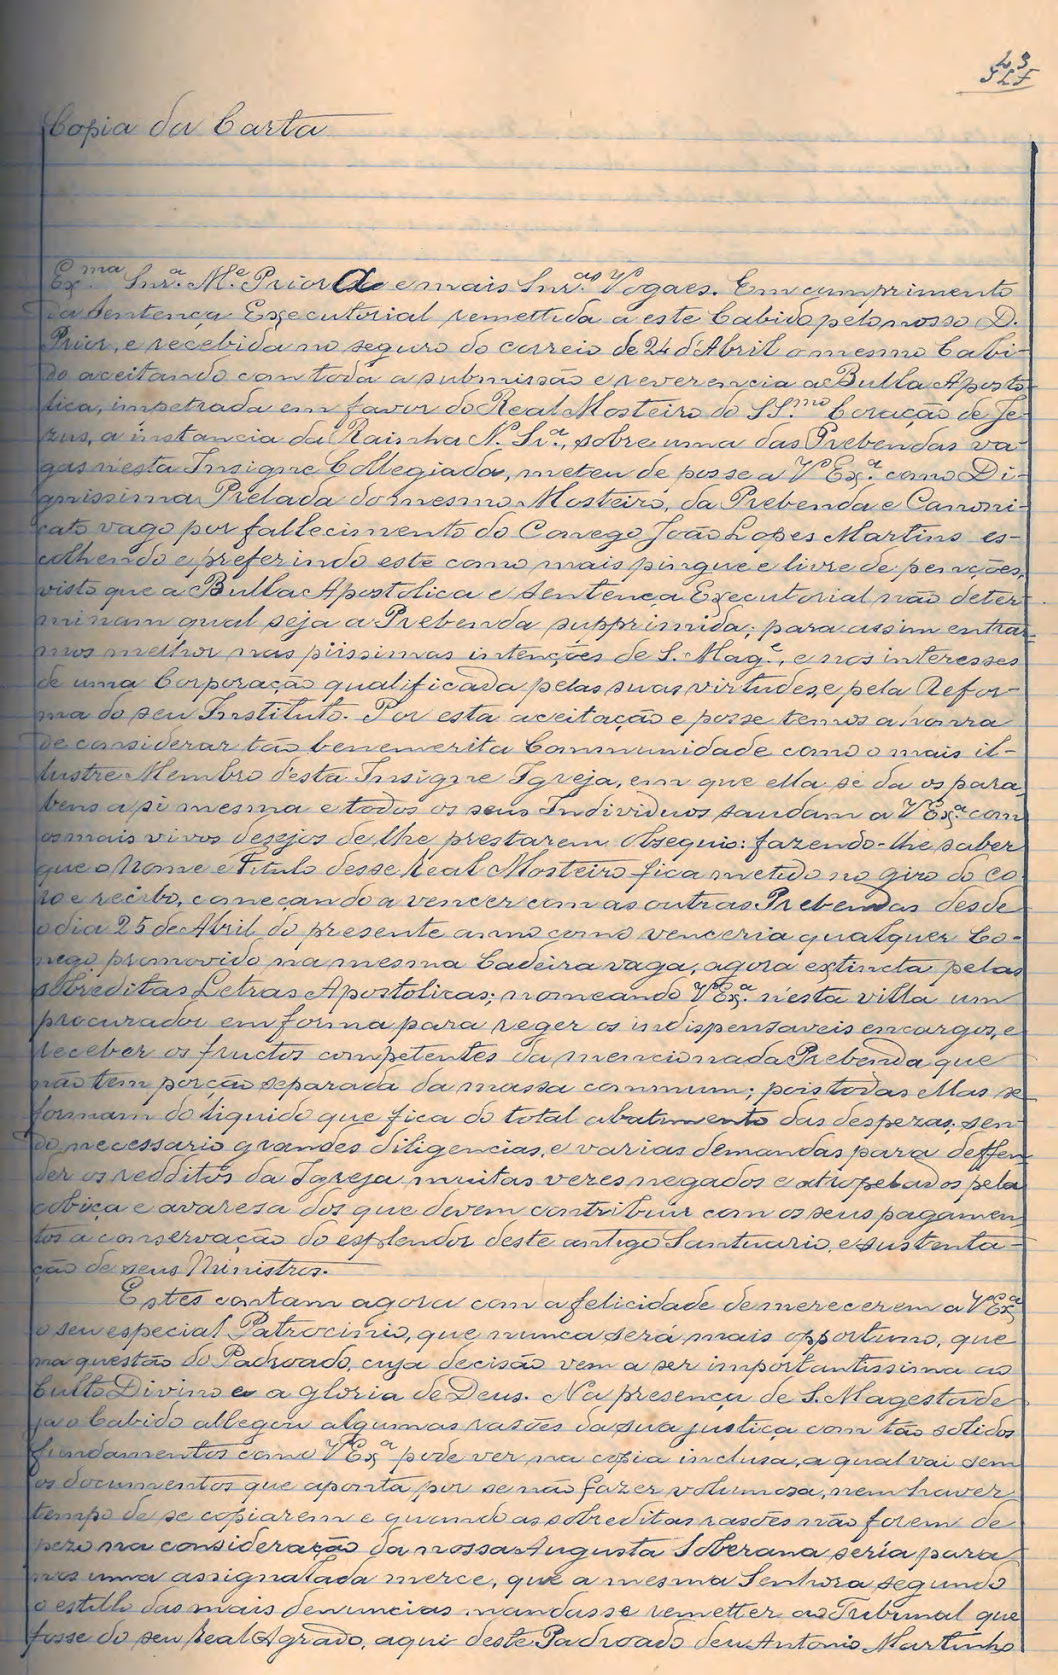 43
Copia da Carta
Ex.ma Snr.a M.e Priora e mais Snr.as Vogaes. Em cumprimento
da Sentença Executorial remettida a este Cabido pelo nosso D.
Prior, e recebida no seguro do correio de 24 d'Abril o mesmo Cabi-
do aceitando com toda a submissão e reverencia a Bulla Aposto
lica, impetrada em favor do Real Mosteiro do SS.mo Coração de Je-
zus, a instancia da Rainha N. Sr.a, sobre uma das Prebendas va-
gas nesta Insigne Collegiada, meteu de posse a V Ex.a como Di-
gnissima Prelada do mesmo Mosteiro, da Prebenda e Canoni-
cato vago por fallecimento do Conego João Lopes Martins es-
colhendo e preferindo este como mais pingue e livre de penções,
visto que a Bulla Apostolica e Sentença Executorial não deter-
minam qual seja a Prebenda supprimida; para assim entrar-
mos melhor nas piissimas intenções de S. Mag.e, e nos interesses
de uma Corporação qualificada pelas suas virtudes, e pela Refor-
ma do seu Instituto. Por esta aceitação e posse temos a honra
de considerar tão benemerita Communidade como o mais il-
lustre Membro d'esta Insigne Igreja, em que ella se da os para
bens a si mesma e todos os seus Individuos saudam a V Ex.a com
os mais vivos desejos de lhe prestarem obsequio: fazendo-lhe saber
que o Nome e Titulo desse Real Mosteiro fica metido no giro do Co
ro e recibo, começando a vencer com as outras Prebendas desde
o dia 25 de Abril do presente anno como venceria qualquer Co-
nego promovido na mesma Cadeira vaga, agora extincta pelas
sobreditas Letras Apostolicas; nomeando V Ex.a n'esta villa um
procurador em forma para reger os indispensaveis encargos, e
receber os fructos competentes da mencionada Prebenda que
não tem porção separada da massa commum; pois todas ellas se
formam do liquido que fica do total abatimento das despezas, sen-
do necessario grandes diligencias, e varias demandas para deffen
der os redditos da Igreja muitas vezes negados e atropelados pela
cobiça e avaresa dos que devem contribuir com os seus pagamen
tos a conservação do esplendor deste antigo Santuario, e sustenta-
ção de seus Ministros.
Estes contam agora com a felicidade de merecerem a V Ex.a
o seu especial Patrocinio, que nunca será mais opportuno, que
na questão do Padroado, cuja decisão vem a ser importantissima ao
Culto Divino e a gloria de Deus. Na presença de S. Magestade
ja o Cabido allegou algumas rasões da sua justiça com tão solidos
fundamentos como V Ex.a pode ver na copia inclusa, a qual vai sem
os documentos que aponta por se não fazer volumosa, nem haver
tempo de se copiarem e quando as sobreditas rasões não forem de
pezo na consideração da nossa Augusta Soberana seria para
nos uma assignalada merce, que a mesma Senhora segundo
o estillo das mais denuncias mandasse remetter ao Tribunal que
fosse do seu Real Agrado, aqui deste Padroado deu Antonio Martinho